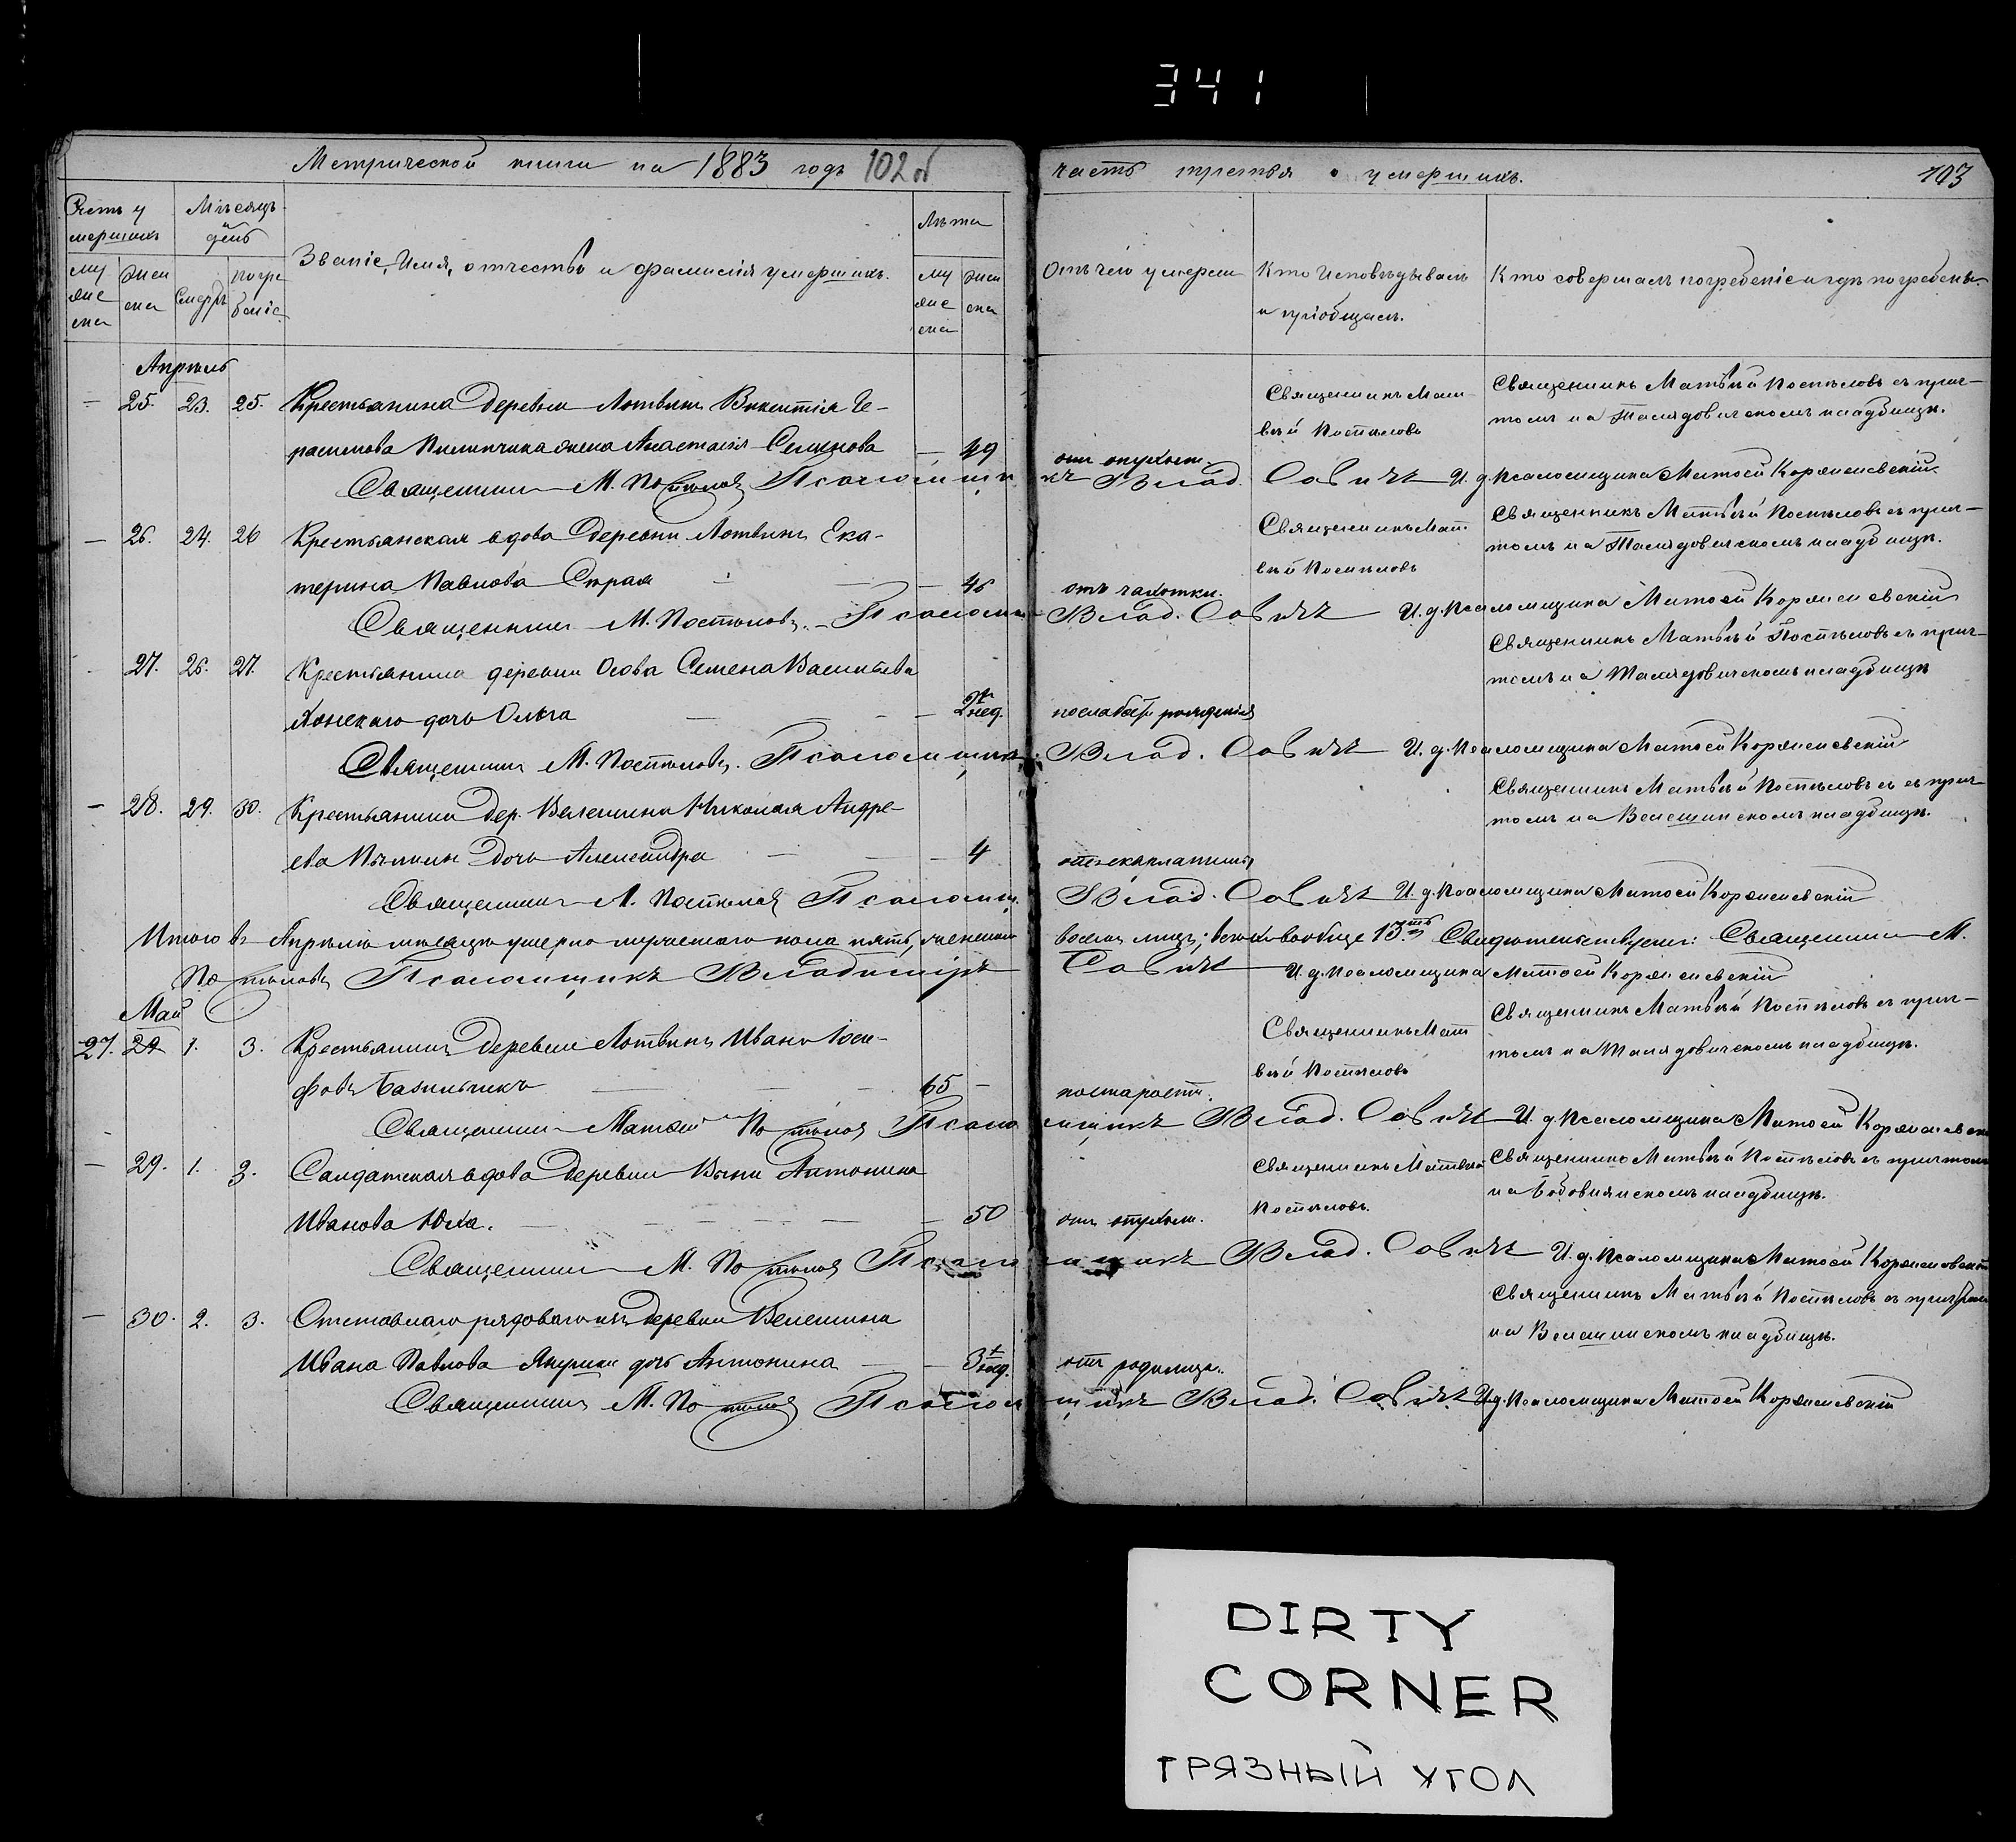 341
Метрической книги на 1883 годъ 102об
часть третья о умершихъ.
103
Счетъ у
мершихъ
Мѣсяцъ
и
день
Званіе, Имя, отчество и фамилія умершихъ.
Лѣта
му
жес
ка
жен
ска
Смерти
погре
бенія
му
жес
ка
жен
ска
Отъ чего умерли
Кто исповѣдывалъ
и пріобщалъ.
Кто совершалъ погребеніе и гдѣ погребены.
Апрѣль
— 25. 23. 25. Крестьянина деревни Лотвинъ Викентія Ге-
расимова Пилипчика жена Анастасія Семенова — 49
отъ опухоли.
Священникъ Мат-
вѣй Постѣловъ
Священникъ Матвѣй Постѣловъ съ прич-
томъ на Талядовичскомъ кладбищѣ.
Священникъ М. Постѣловъ Псаломщикъ Влад. Савичъ И. д. Псаломщика Матѳей Корженевскій
— 26. 24. 26 Крестьянская вдова деревни Лотвинъ Ека-
терина Павлова — — 45
отъ чахотки.
Священникъ Мат
вѣй Постѣловъ
Священникъ Матвѣй Постѣловъ съ прич-
томъ на Талядовичскомъ кладбищѣ.
Священникъ М. Постѣловъ. Псаломщикъ Влад. Савичъ И. д. Псаломщика Матѳей Корженевскій
27. 25. 27. Крестьянина деревни Осова Семена Васильева
дочь Ольга — — — 2 нед.
по слабости рожденія
Священникъ Матвѣй Постѣловъ съ прич-
томъ на Талядовичскомъ кладбищѣ
Священникъ М. Постѣловъ. Псаломщикъ Влад. Савичъ И. д. Псаломщика Матѳей Корженевскій
— 28. 29. 30. Крестьянина дер. Велешина Николая Андре-
ева дочь Александра — — — 4
отъ скарлатины
Священникъ Матвѣй Постѣловъ съ прич-
томъ на Велешинскомъ кладбищѣ.
Священникъ М. Постѣловъ Псаломщ. Влад. Савичъ И. д. Псаломщика Матѳей Корженевскій
Итого въ Апрѣлѣ мѣсяцѣ умерло мужескаго пола пять, женскаго восемь лицъ; вообще 13ть Свидѣтельствуемъ: Священникъ М.
Постѣловъ Псаломщикъ Владиміръ Савичъ И. д. Псаломщика Матѳей Корженевскій
Май
27. 29 1. 3. Крестьянинъ деревни Лотвинъ Иванъ Іоси-
фовъ Базыльчикъ — — 65 —
по старости.
Священникъ Мат
вѣй Постѣловъ
Священникъ Матвѣй Постѣловъ съ прич-
томъ на Талядовичскомъ кладбищѣ.
Священникъ Матѳей Постѣловъ Псаломщикъ Влад. Савичъ И. д. Псаломщика Матѳей Корженевскій
— 29. 1. 3. Солдатская вдова деревни Выни Антонина
Иванова Юха. — — — — — 50
отъ опухоли.
Священникъ Матвѣй
Постѣловъ.
Священникъ Матвѣй Постѣловъ съ причтомъ
на Бобовнянскомъ кладбищѣ.
Священникъ М. Постѣловъ Псаломщикъ Влад. Савичъ И. д. Псаломщика Матѳей Корженевскій
— 30. 2. 3. Отставнаго рядоваго изъ деревни Велешина
Ивана Павлова дочь Антонина — — 3 нед.
отъ родимца.
Священникъ Матвѣй Постѣловъ съ причтомъ
на Велешинскомъ кладбищѣ.
Священникъ М. Постѣловъ Псаломщикъ Влад. Савичъ И. д. Псаломщика Матѳей Корженевскій
DIRTY
CORNER
ГРЯЗНЫЙ УГОЛ